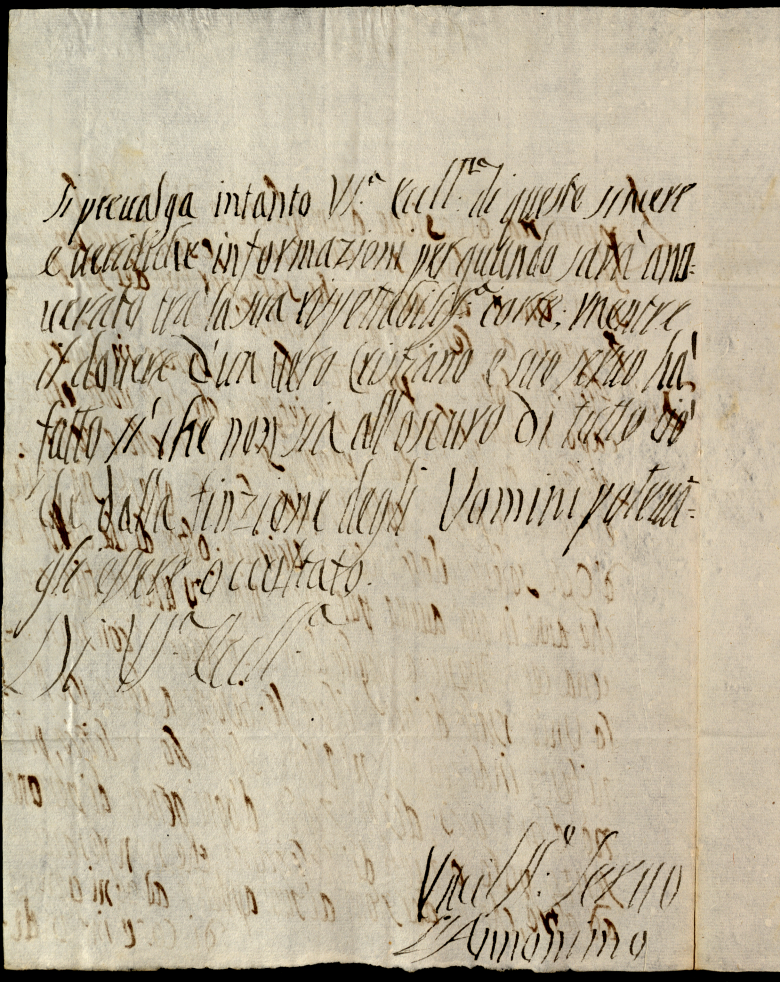 Si preualga intanto V.S.ª Eccll.ª di queste sincere
e ueridiche informazioni per quando sarà ano=
uerato trà la sua rispettabiliss.ª corte; mentre
il douere d'un uero Cristiano e suo seruo hà
fatto si che non sia all'oscuro di tutto ciò
che dalla finzione degli Uomini poteua=
gli essere occultato.
Di V.S.ª Eccll.ª
L'Annonimo